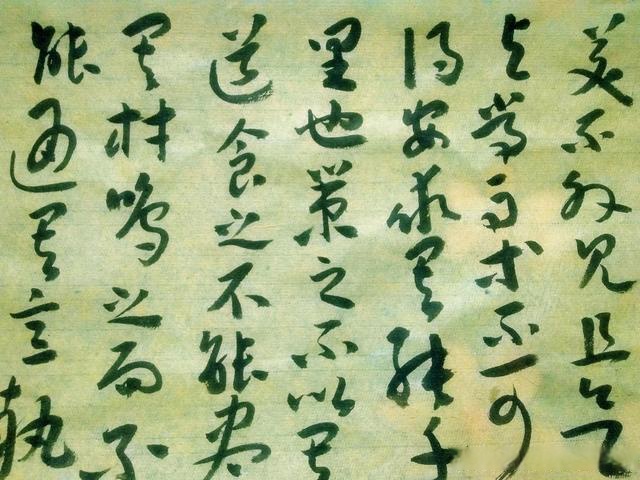 美不外見且欲
與常馬等不可
得安求其能千
里也策之不以其
道食之不能盡
其材鳴之而不
能通其意執